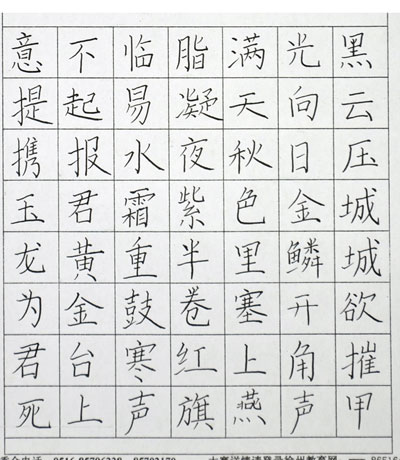 黑云压城城欲摧甲
光向日金鳞开角声
满天秋色里塞上燕
脂凝夜紫半卷红旗
临易水霜重鼓寒声
不起报君黄金台上
意提携玉龙为君死